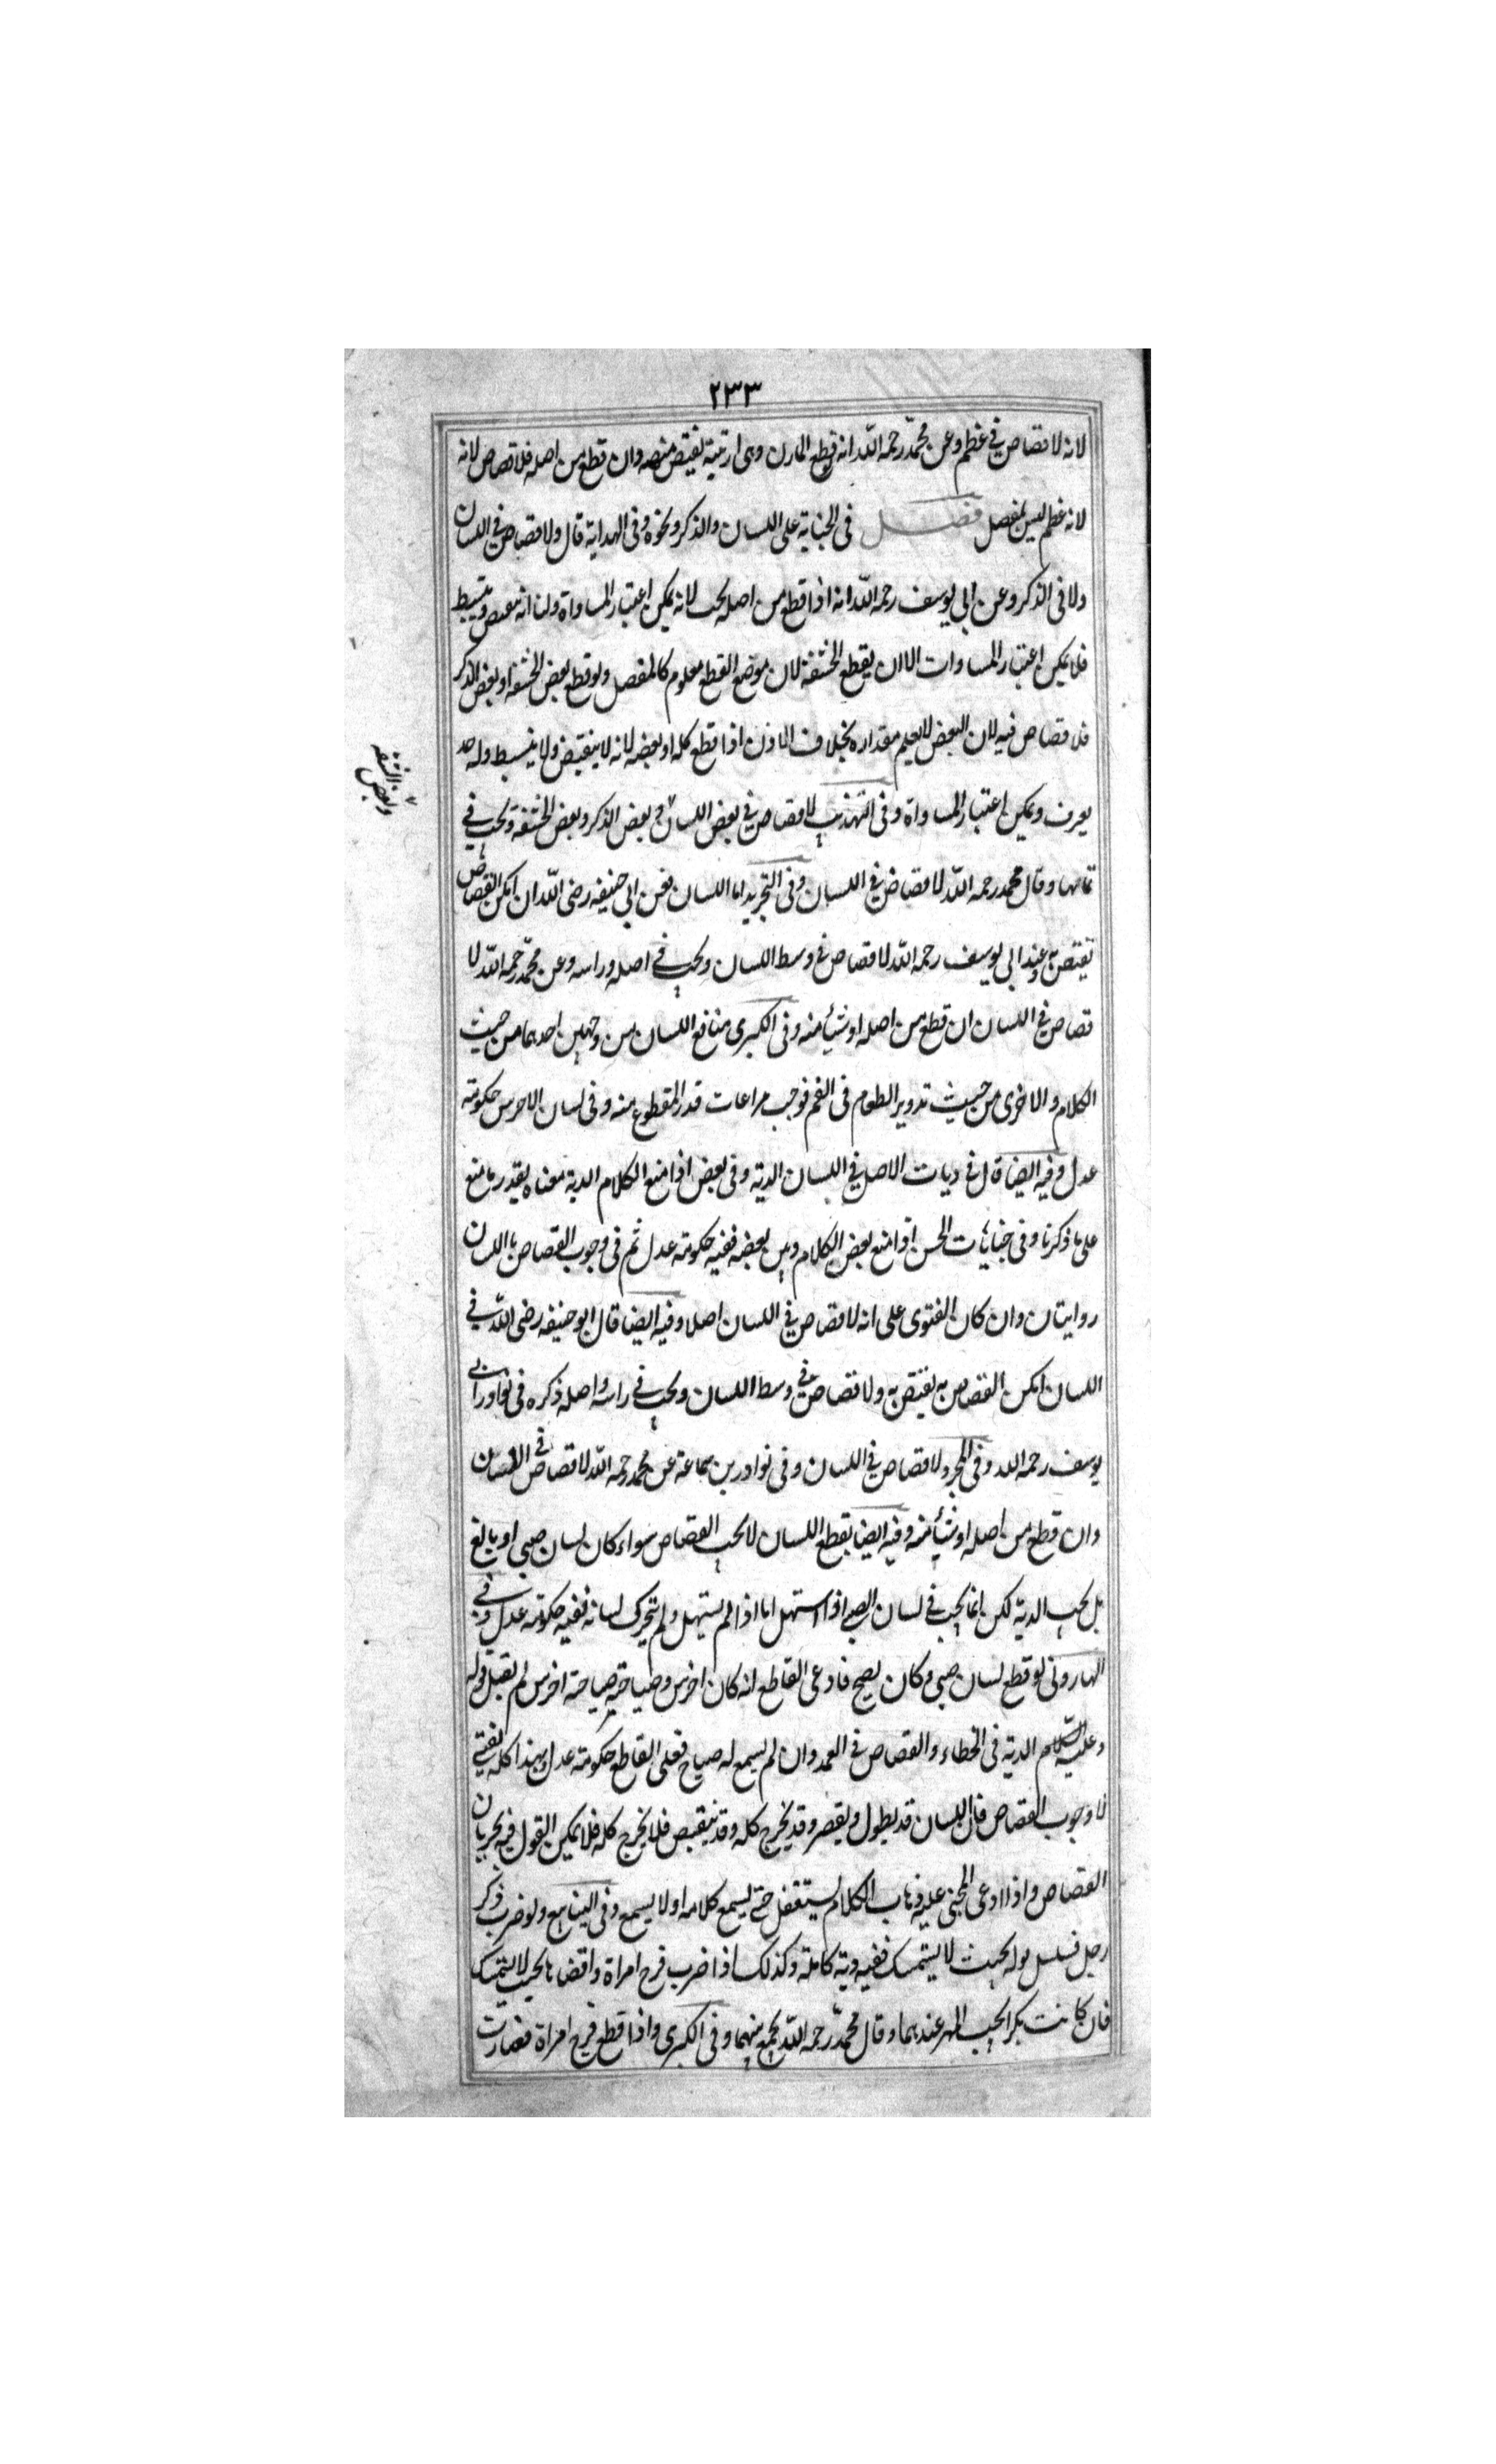 ٢٣٣
لانه لا قصاص في عظم وعن محمد رحمه الله انه قطع المارن وهى ارنبة تقتص منه وان قطع من اصله فلا قصاص لانه
لانه عظم ليس بمفصل فصل فى الجناية على اللسان والذكر ونحوه وفى الهداية قال ولا قصاص في اللسان
ولا فى الذكر وعن ابى يوسف رحمه الله انه اذا قطع من اصله يجب لانه يمكن اعتبار المساواة ولنا انه ينقبض وينبسط
فلا يمكن اعتبار المساوات الا ان يقطع الحشفة لان موضع القطع معلوم كالمفصل ولو قطع بعض الحشفة او بعض الذكر
فلا قصاص فيه لان البعض لا يعلم مقداره بخلاف الاذن اذا قطع كله او بعضه لانه لا ينقبض ولا ينبسط وله حد
يعرف ويمكن اعتبار المساواة وفى التهذيب لا قصاص في بعض اللسان و بعض الذكر وبعض الحشفة ويجب في
وبعض الشفة
تمامها وقال محمد رحمه الله لا قصاص في اللسان وفى التجريد اما اللسان فعن ابي حنيفه رضى الله ان امكن القصاص
تقتص به وعند ابى يوسف رحمه الله لا قصاص في وسط اللسان ويجب في اصله وراسه وعن محمد رحمه الله لا
قصاص في اللسان ان قطع من اصله او شيأ منه وفى الكبرى منافع اللسان من وجهين احدهما من حيث
الكلام والاخرى من حيث تدوير الطعام فى الفم فوجب مراعات قدر المقطوع منه وفى لسان الاخرس حكومة
عدل وفيه ايضا قال فى ديات الاصل في اللسان الدية وفى بعض اذا منع الكلام الدية معناه بقدر ما منع
على ما ذكرنا وفى جنايات الحسن اذا منع بعض الكلام دون بعضه ففيه حكومة عدل ثم فى وجوب القصاص باللسان
روايتان وان كان الفتوى على انه لا قصاص في اللسان اصلا وفيه ايضا قال ابو حنيفه رضى الله في
اللسان امكن القصاص به يقتص به ولا قصاص في وسط اللسان ويجب في راسه واصله ذكره فى نوادر ابي
يوسف رحمه الله وفى المجرد لا قصاص في اللسان وفى نوادر بن سماعة عن محمد رحمه الله لا قصاص في اللسان
وان قطع من اصله او شيأ منه وفيه ايضا بقطع اللسان لا يجب القصاص سواء كان لسان صبى او بالغ
بل يجب الدية لكن انما يجب في لسان الصبي اذا استهل اما اذا لم يستهل ولم يتحرك لسانه ففيه حكومة عدل وفي
الهارونى لو قطع لسان صبى وكان يصيح فادعى القاطع انه كان اخرس وصياحته صياحة اخرس لم يقبل قوله
وعليه الدية فى الخطاء والقصاص في العمد وان لم يسمع له صياح فعلى القاطع حكومة عدل وبهذا كله يفتي
لا وجوب القصاص فان اللسان قد يطول ويقصر وقد يخرج كله وقد ينقبض فلا يخرج كله فلا يمكن القول فيه بجريان
القصاص واذا ادعى المجنى عليه ذهاب الكلام يستغفل حتى يسمع كلامه او لا يسمع وفى الينابيع ولو ضرب ذكر
رجل فسلسل بوله بحيث لا يستمسك ففيه دية كاملة وكذلك اذا ضرب فرج امراة وافضاها بحيث لا يستمسك
فان كانت بكرا يجب المهر عندهما وقال محمد رحمه الله يجمع بينهما وفى الكبرى واذا قطع فرج امراة فصارت